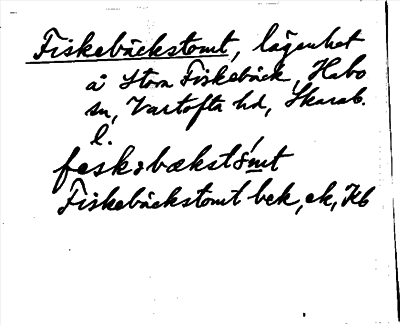 Fiskebäckstomt, lägenhet
å Stora Fiskebäck, Habo
sn, Vartofta hd, Skarab.
l.
feskəbækstómt
Fiskebäckstomt bek, ek, Kb